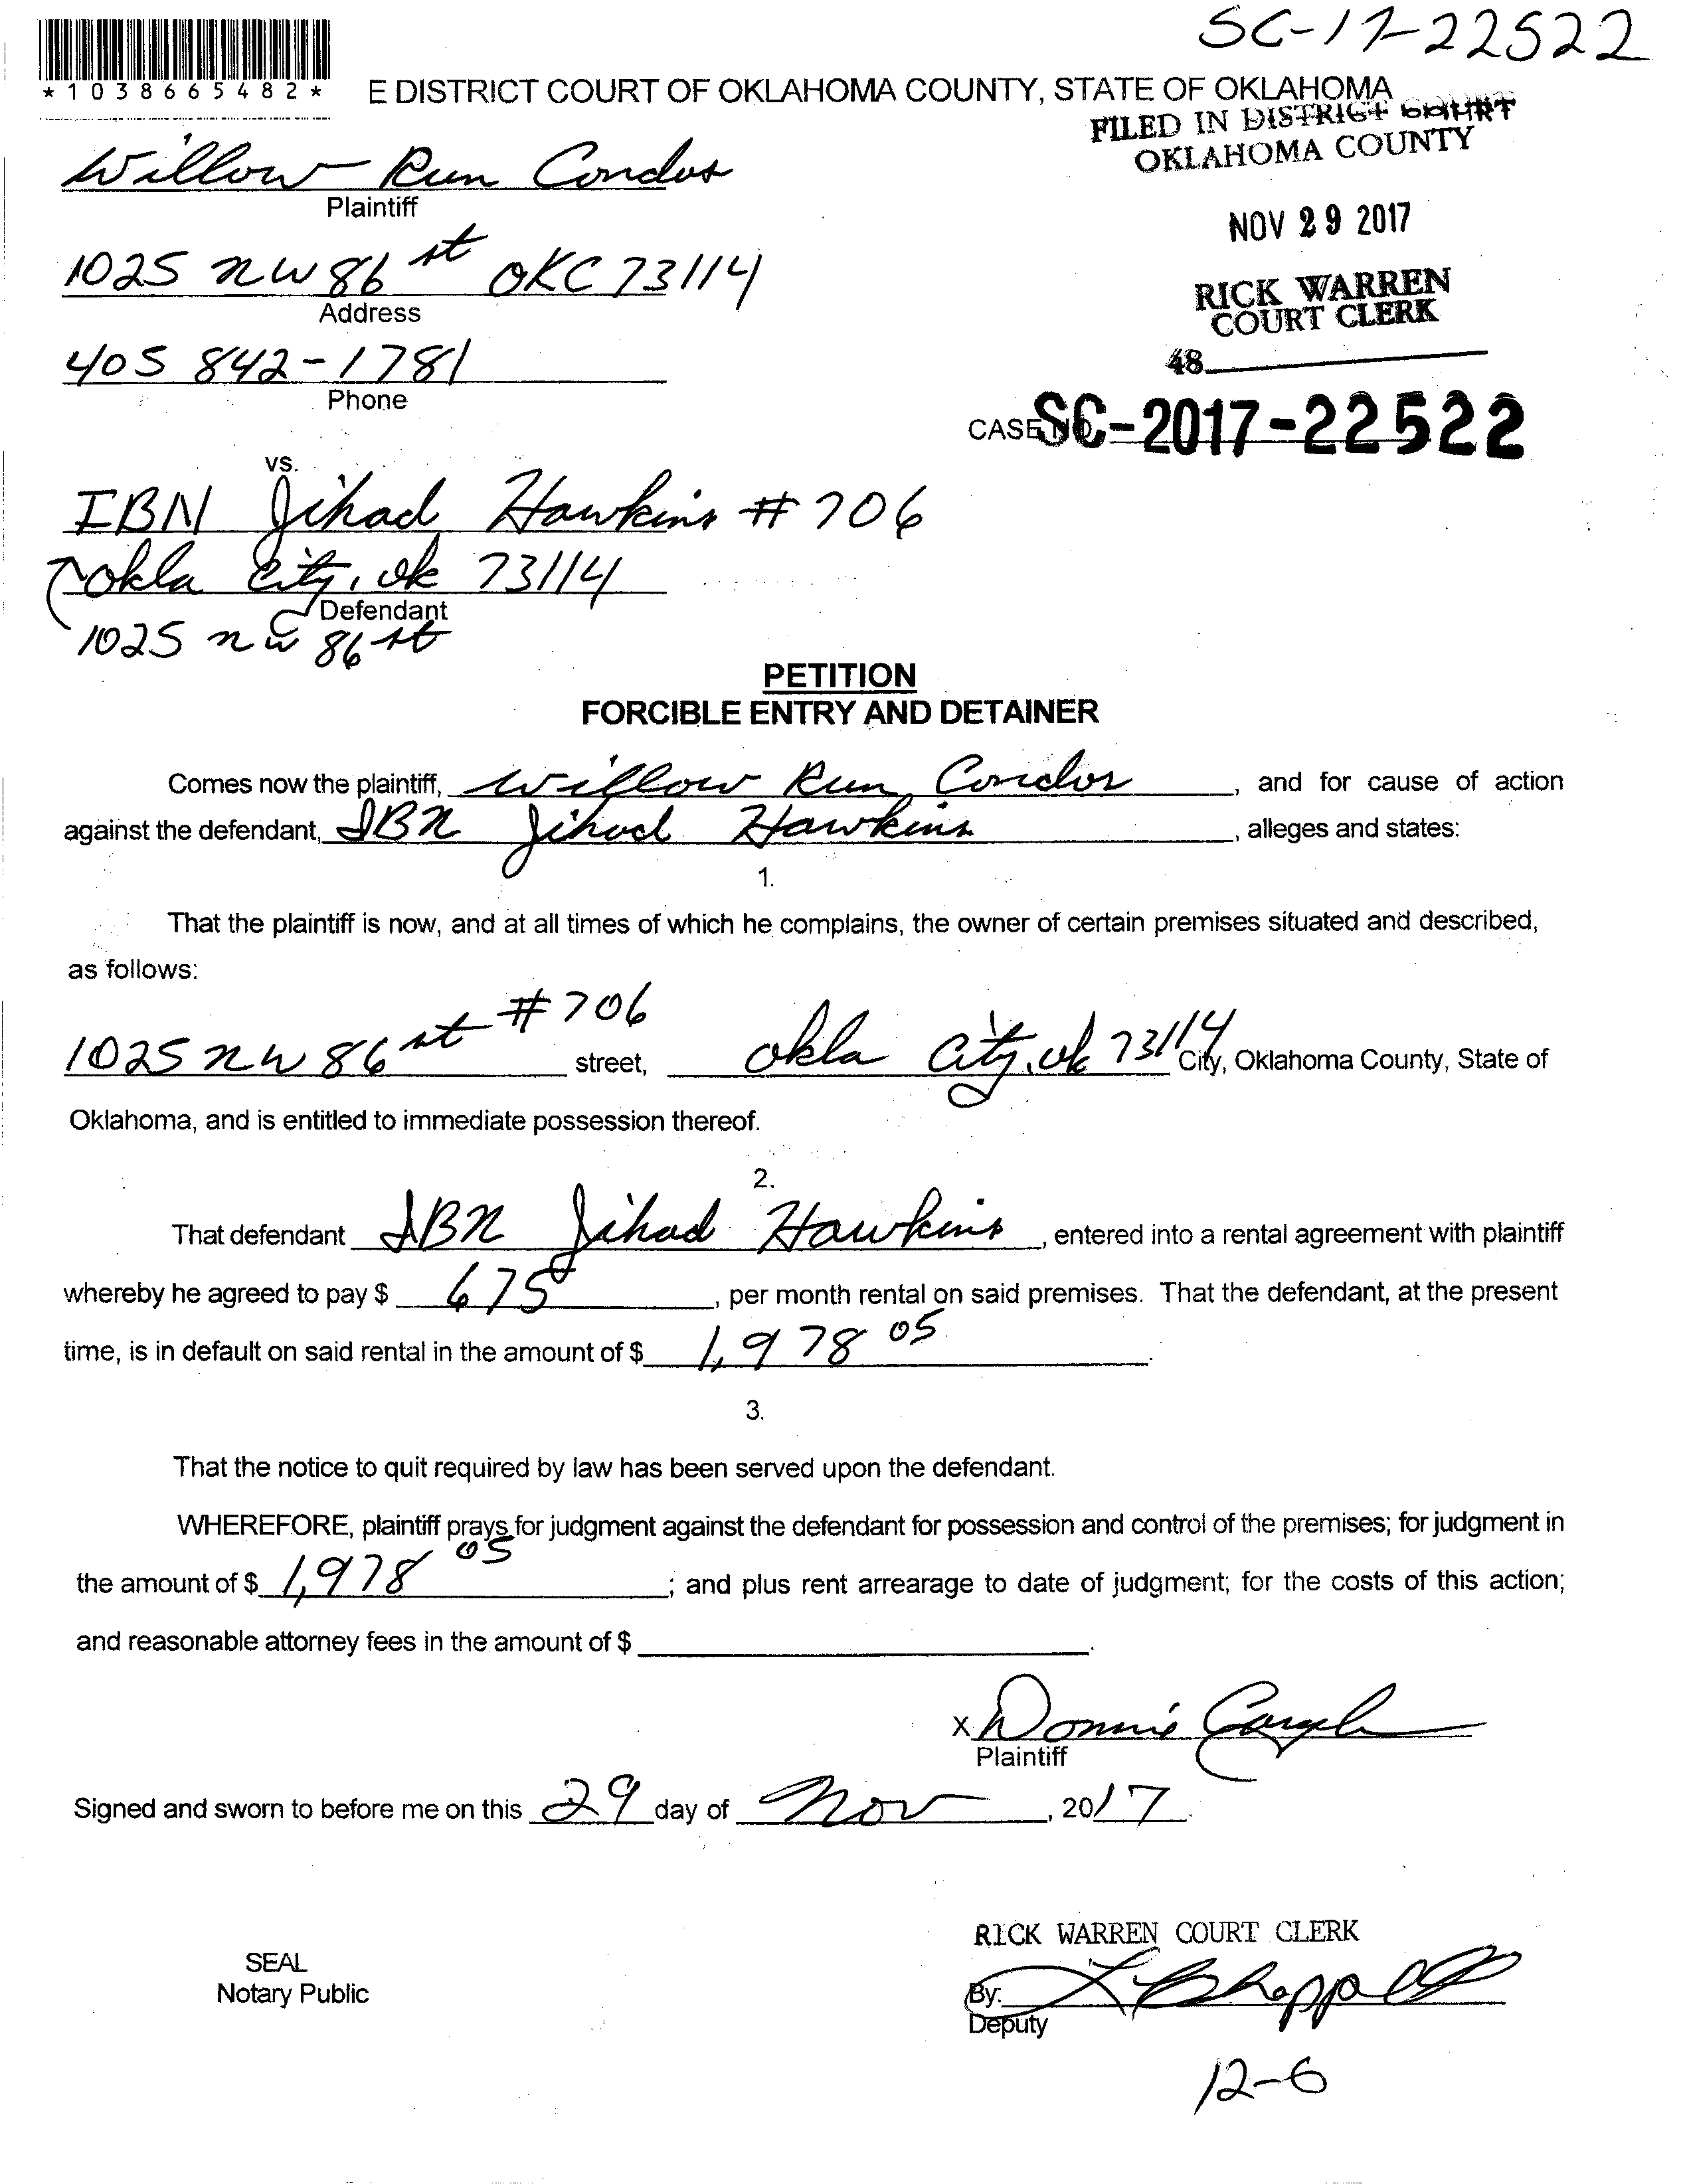 SC-17-22522
*1038665482*
E DISTRICT COURT OF OKLAHOMA COUNTY, STATE OF OKLAHOMA
FILED IN DISTRICT COURT
OKLAHOMA COUNTY
Willow Run Condos
Plaintiff
NOV 29 2017
1025 NW 86 st OKC 73114
Address
RICK WARREN
COURT CLERK
405 842-1781
Phone
48
CASE NO. SC-2017-22522
vs.
IBN Jihad Hawkins #706
Okla City, Ok 73114
Defendant
1025 NW 86 st
PETITION
FORCIBLE ENTRY AND DETAINER
Comes now the plaintiff, Willow Run Condos, and for cause of action
against the defendant, IBN Jihad Hawkins, alleges and states:
1.
That the plaintiff is now, and at all times of which he complains, the owner of certain premises situated and described,
as follows:
1025 NW 86 st #706 street, Okla City, Ok 73114 City, Oklahoma County, State of
Oklahoma, and is entitled to immediate possession thereof.
2.
That defendant IBN Jihad Hawkins, entered into a rental agreement with plaintiff
whereby he agreed to pay $ 675, per month rental on said premises. That the defendant, at the present
time, is in default on said rental in the amount of $ 1,978 05.
3.
That the notice to quit required by law has been served upon the defendant.
WHEREFORE, plaintiff prays for judgment against the defendant for possession and control of the premises; for judgment in
the amount of $ 1,978 05; and plus rent arrearage to date of judgment; for the costs of this action;
and reasonable attorney fees in the amount of $ .
X Donnie
Plaintiff
Signed and sworn to before me on this 29 day of Nov, 2017.
RICK WARREN COURT CLERK
SEAL
Notary Public
By:
Deputy
12-6